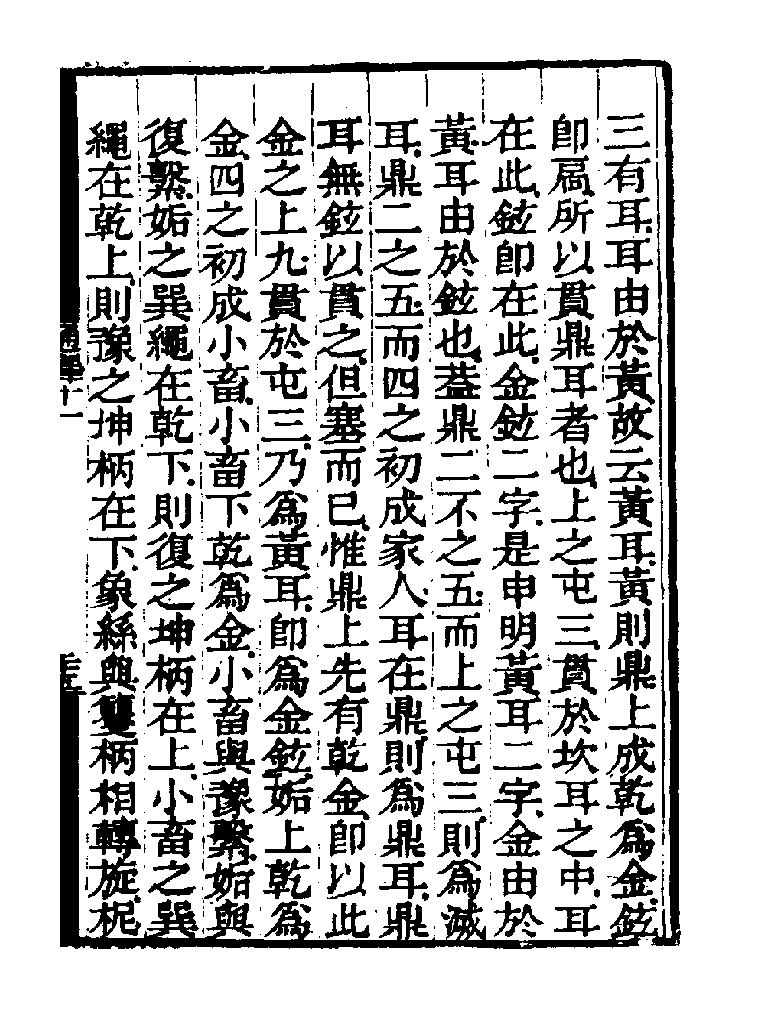 三有耳耳由於黃故云黃耳黃則鼎上成乾爲金鉉
卽扃所以貫鼎耳者也上之屯三貫於坎耳之中耳
在此鉉卽在此金鉉二字是申明黃耳二字金由於
黃耳由於鉉也葢鼎二不之五而上之屯三則爲滅
耳鼎二之五而四之初成家人耳在鼎則爲鼎耳鼎
耳無鉉以貫之但塞而已惟鼎上先有乾金卽以此
金之上九貫於屯三乃爲黃耳卽爲金鉉姤上乾爲
金四之初成小畜小畜下乾爲金小畜與豫繫姤與
復繫姤之巽繩在乾下則復之坤柄在上小畜之巽
繩在乾上則豫之坤柄在下象絲與雙柄相轉旋柅